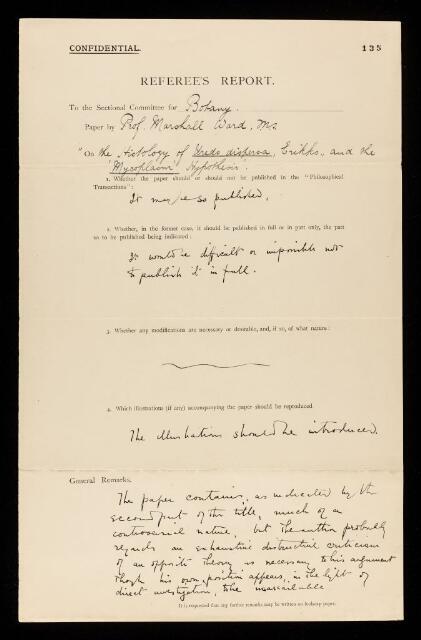 CONFIDENTIAL.
135
REFEREE'S REPORT.
To the Sectional Committee for Botany.
Paper by Prof. Marshall Ward, MS
"On the Histology of Uredo dispersa, Erikks., and the
'Mycoplasm' Hypothesis."
1. Whether the paper should or should not be published in the "Philosophical
Transactions":
It may be so published.
2. Whether, in the former case, it should be published in full or in part only, the part
so to be published being indicated:
It would be difficult or impossible not
to publish it in full.
3. Whether any modifications are necessary or desirable, and, if so, of what nature:
4. Which illustrations (if any) accompanying the paper should be reproduced.
The illustrations should be introduced.
General Remarks.
The paper contains, as indicated by the
second part of the title, much of a
controversial nature, but the author probably
regards an exhaustive destructive criticism
of an opposite theory as necessary to his argument
though his own position appears, in the light of
direct investigation, to be unassailable
It is requested that any further remarks may be written on foolscap paper.